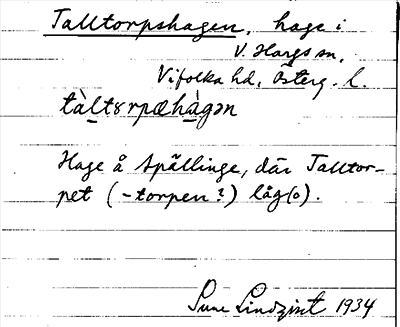 Talltorpshagen, hage i
V. Hargs sn,
Vifolka hd, Österg. l.
tàltɤrpæhàgən
Hage å Spällinge, där Talltor-
pet (-torpen?) låg(o).
Sune Lindqvist 1934